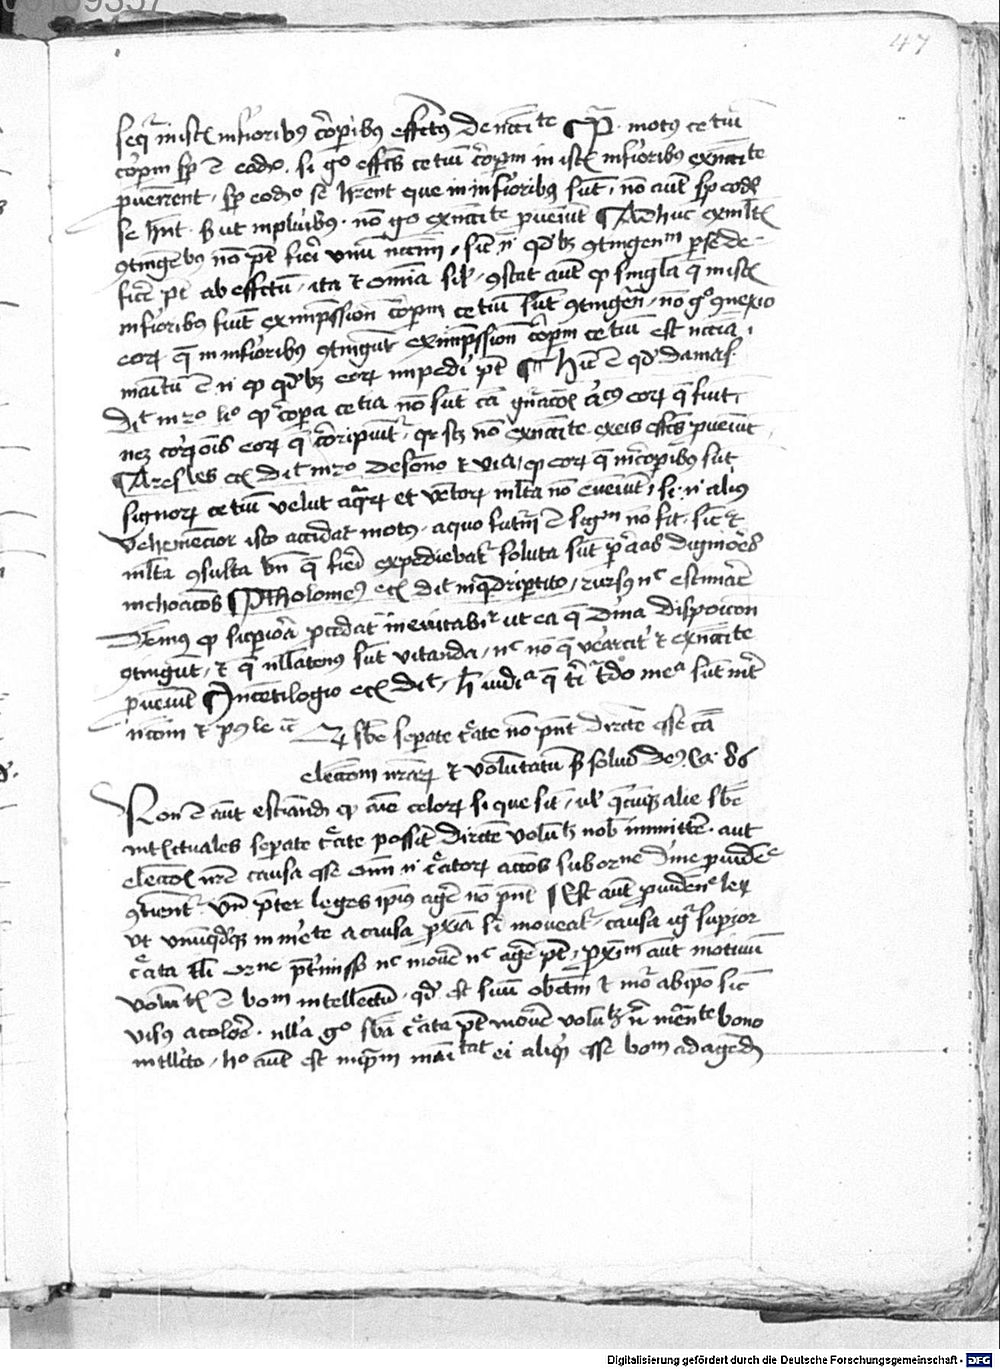 47
seqr in istis inferioribus corporibus effectus de necitate Pa. motus celestium
corporum semper est eodem modo. si go effectus celestium corporum in istis inferioribus ex necitate
pvenirent, semper eodem modo se haberent que in inferioribus sunt, non autem semper eodem
se hnt. sed ut in pluribus. non go ex necitate pveniunt Adhuc ex multis
contingentibus non pot fieri unum necessarium, sicut n quodlibet contingentium per se de
ficere pt ab effectu, ita et omnia simul, constat autem quod singula que in istis
inferioribus fiunt ex impressione corporum celestium sunt contingentia, non go connexio
eorum que in inferioribus contingunt ex impressione corporum celestium est necessaria,
manifestum est n quod quodlibet eorum impediri pt Hinc est quod damas.
dit in 2o lio quod corpora celestia non sunt causa generationis alicuius eorum que fiunt
neque corruptionis eorum que corrumpuntur, quia scilicet non ex necitate ex eis effectus pveniunt
Aresles etiam dit in 2o de sompno et vigilia, quod eorum que in corporibus sunt
signorum celestium velut aquarum et ventorum multa non eveniunt, si n alius
vehemencior isto accidat motus, a quo futurum est signum non fit, sicut et
multa consulta bene que fieri expediebat soluta sunt propter alias digniores
inchoaciones Ptholomeus etiam dit in quadripertito, rursus nec estimare
demus quod superiora procedant inevitabiliter ut ea que divina dispositione
contingunt, et que nullatenus sunt vitanda, nec non que veraciter et ex necitate
pveniunt In centilogio etiam dit, hec iudicia que tibi trado media sunt inter
necessarium et possibile
Quod substantie separate create non possunt directe esse causa
electionum nostrarum et voluntatum sed solus deus Ca. 86
Non est autem estimandum quod anime celorum si que sint, vel quecumque alie substantie
intellectuales separate create possint directe voluntatem nobis immittere. aut
electionis nostre causa esse omnium n creatorum actiones sub ordine divine providentie
continentur. Unde preter leges ipsius agere non possunt Est autem providentie lex
ut unumquodque in mediate a causa proxima sui moveatur. causa igitur superior
creata tali ordine pretermisso nec movere nec agere pt, proximum autem motivum
voluntatis est bonum intellectum, quod est suum obiectum et movetur ab ipso sicut
visus a colore. nulla go substantia creata pt movere voluntatem nisi mediante bono
intellecto, hoc autem est inquantum manifestat ei aliquid esse bonum ad agendum
Digitalisierung gefördert durch die Deutsche Forschungsgemeinschaft - DFG